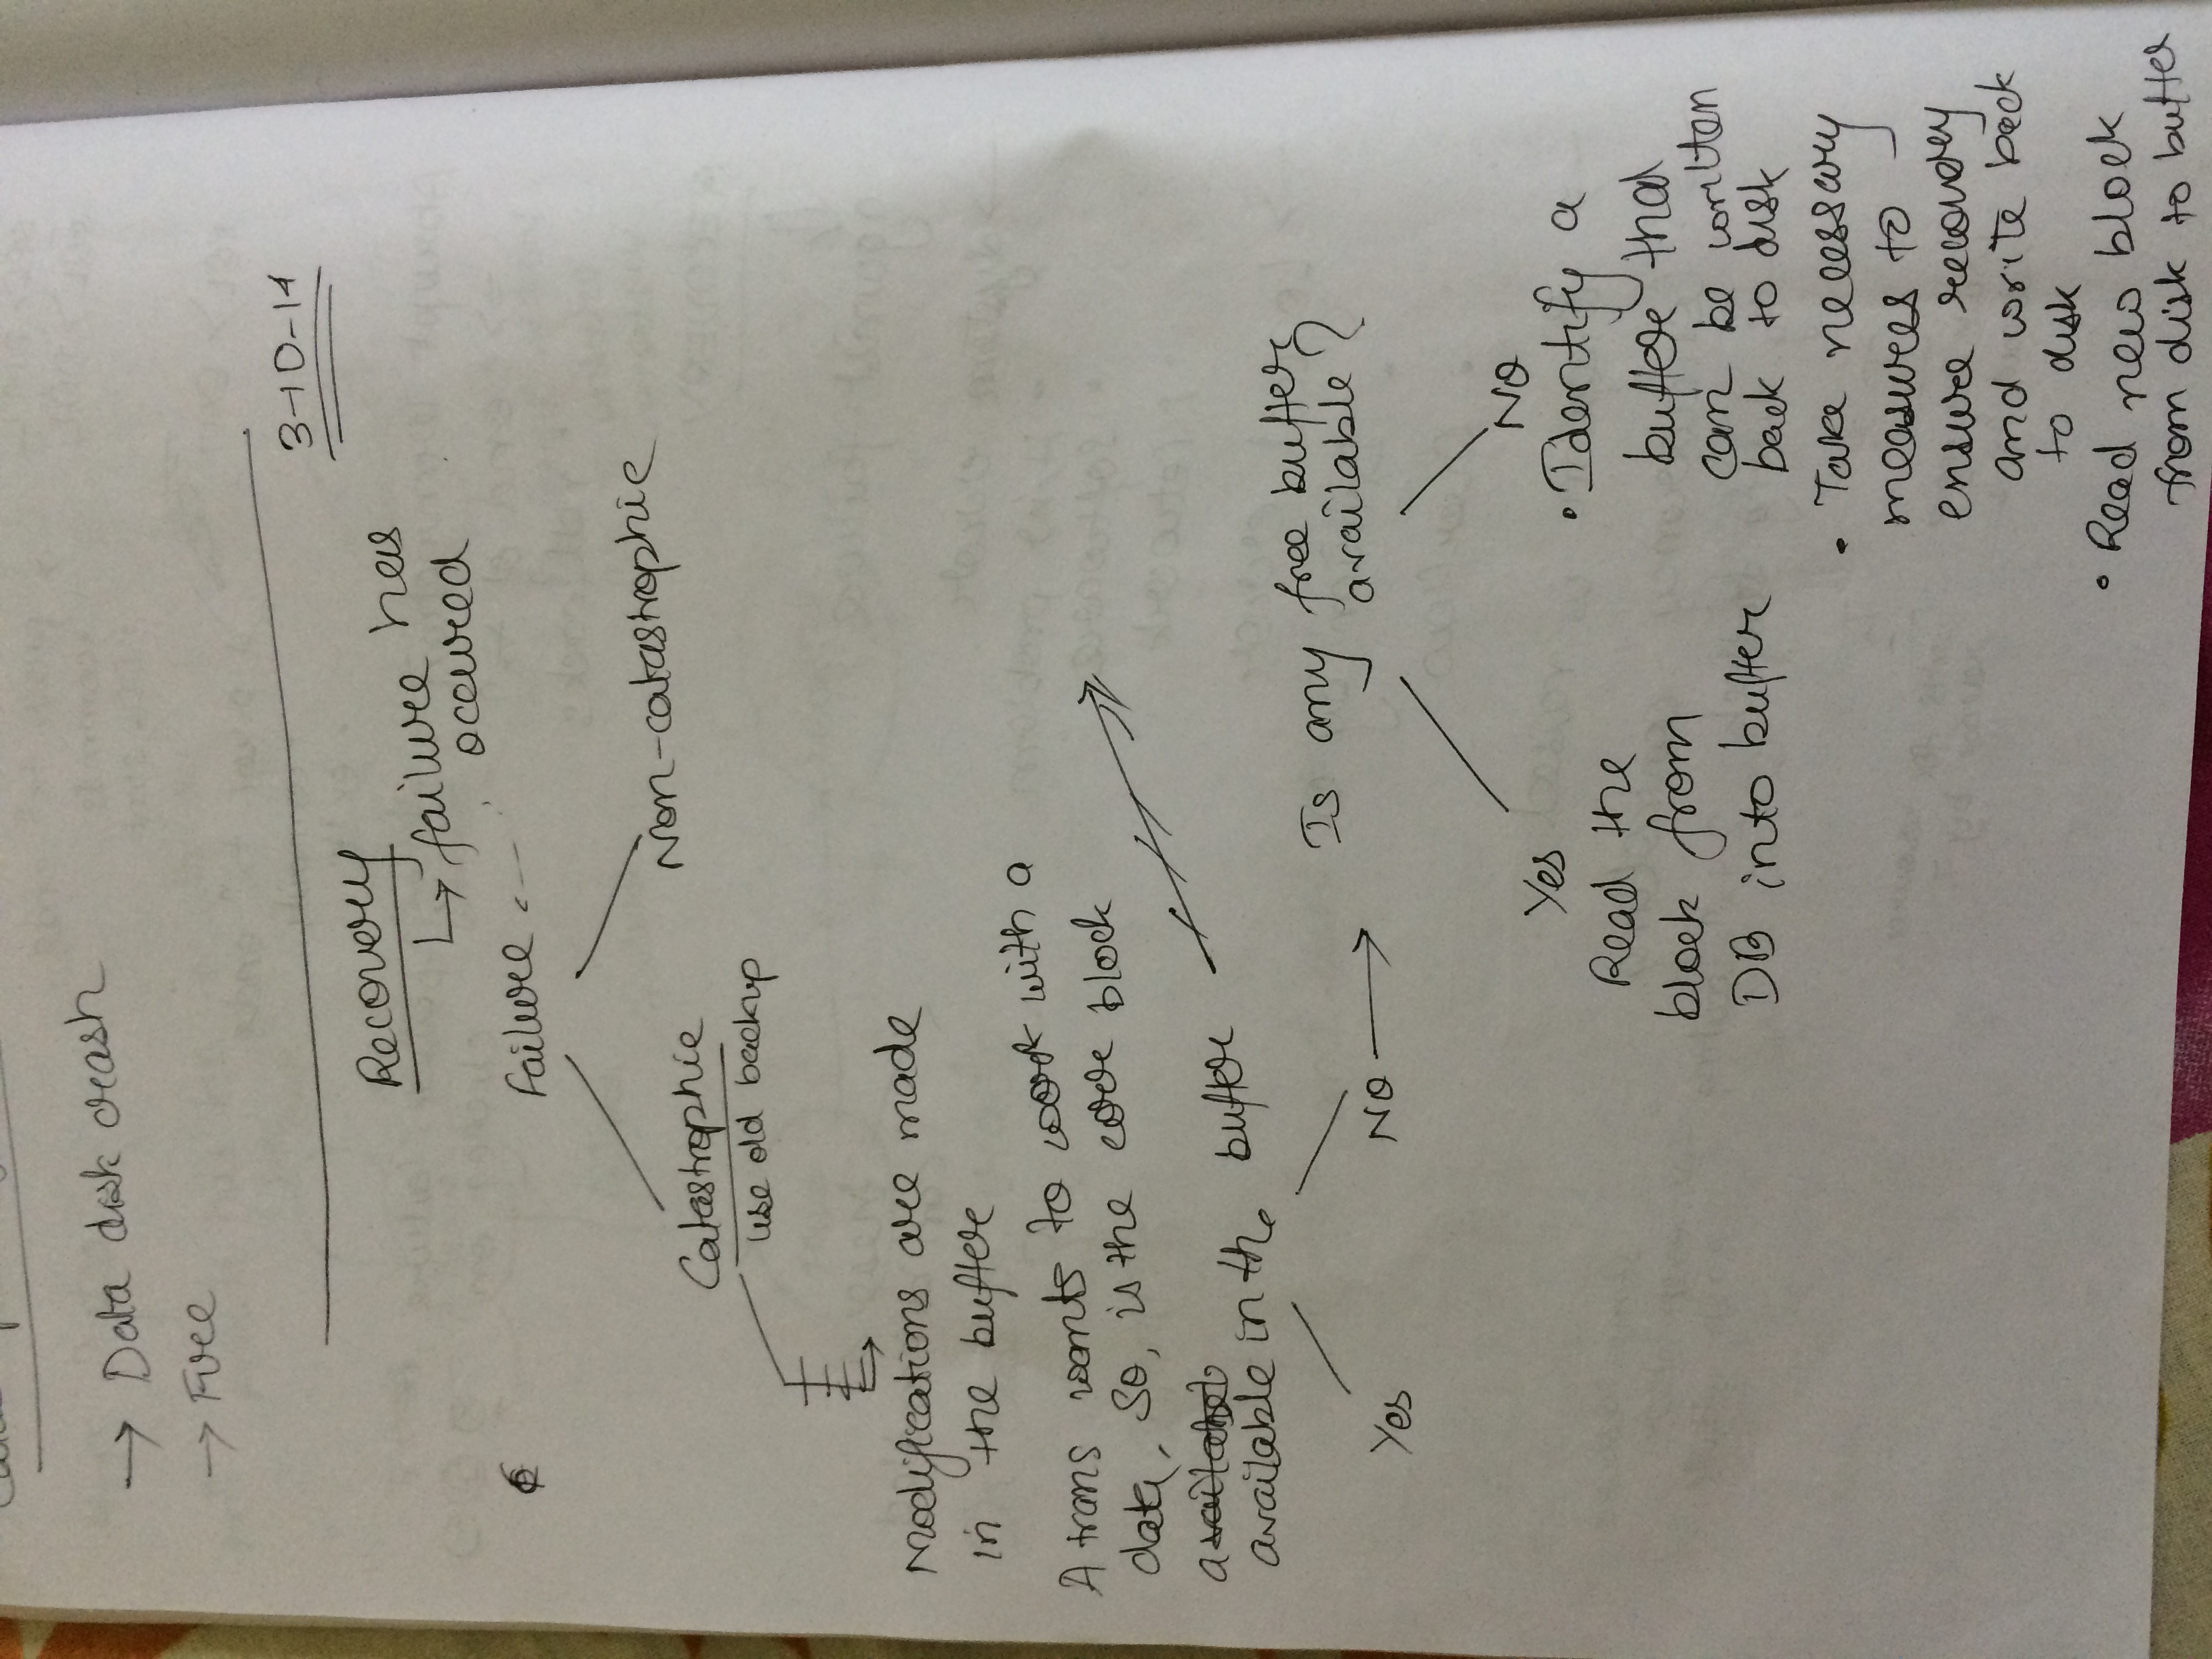 → Data disk crash
→ Fire
3-10-14
Recovery
↳ failure has
occured
Failure
Catastrophic
Non-catastrophic
use old backup
Modifications are made
in the buffer
A trans wants to work with a
data, So, is the core block
available in the buffer
Yes
No →
Is any free buffer
available?
Yes
Read the
block from
DB into buffer
No
• Identify a
buffer that
can be written
back to disk
• Take necessary
measures to
ensure recovery
and write back
to disk
• Read new block
from disk to buffer